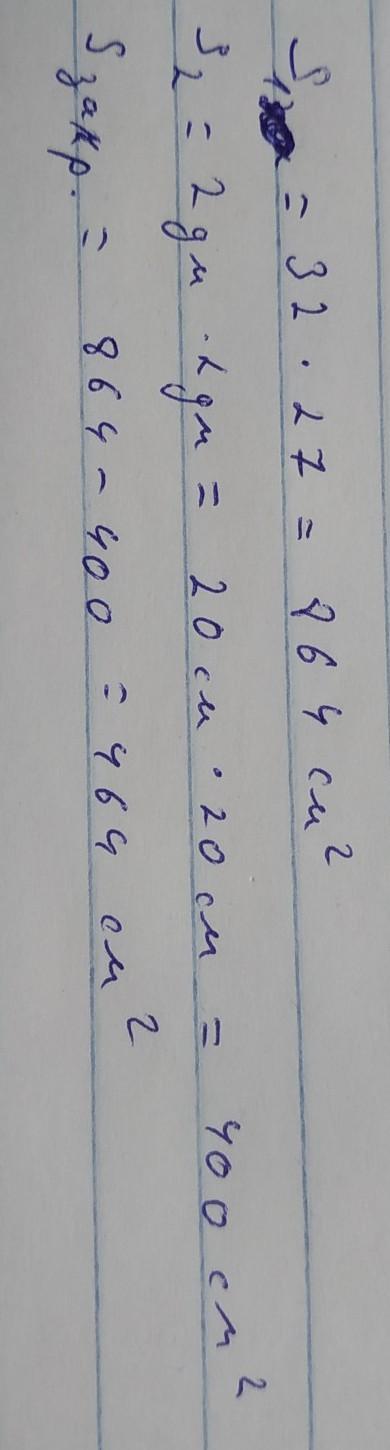 S₁ = 32 · 27 = 864 см²
S₂ = 2 дм · 2 дм = 20 см · 20 см = 400 см²
S закр. = 864 - 400 = 464 см²